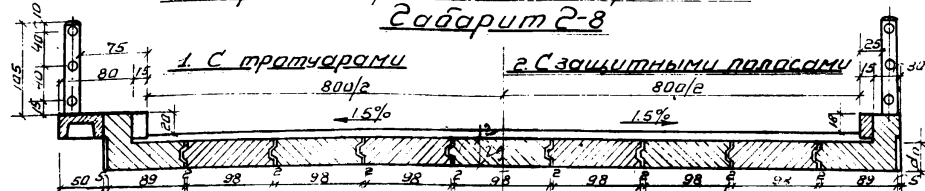 Габарит Г-8
1. С тротуарами
2. С защитными полосами
800/2
800/2
1.5%
1.5%
10
40
40
15
105
75
80
15
20
25
15
30
18
2
50
5
89
2
98
2
98
2
98
2
98
2
98
2
98
2
98
2
89
5